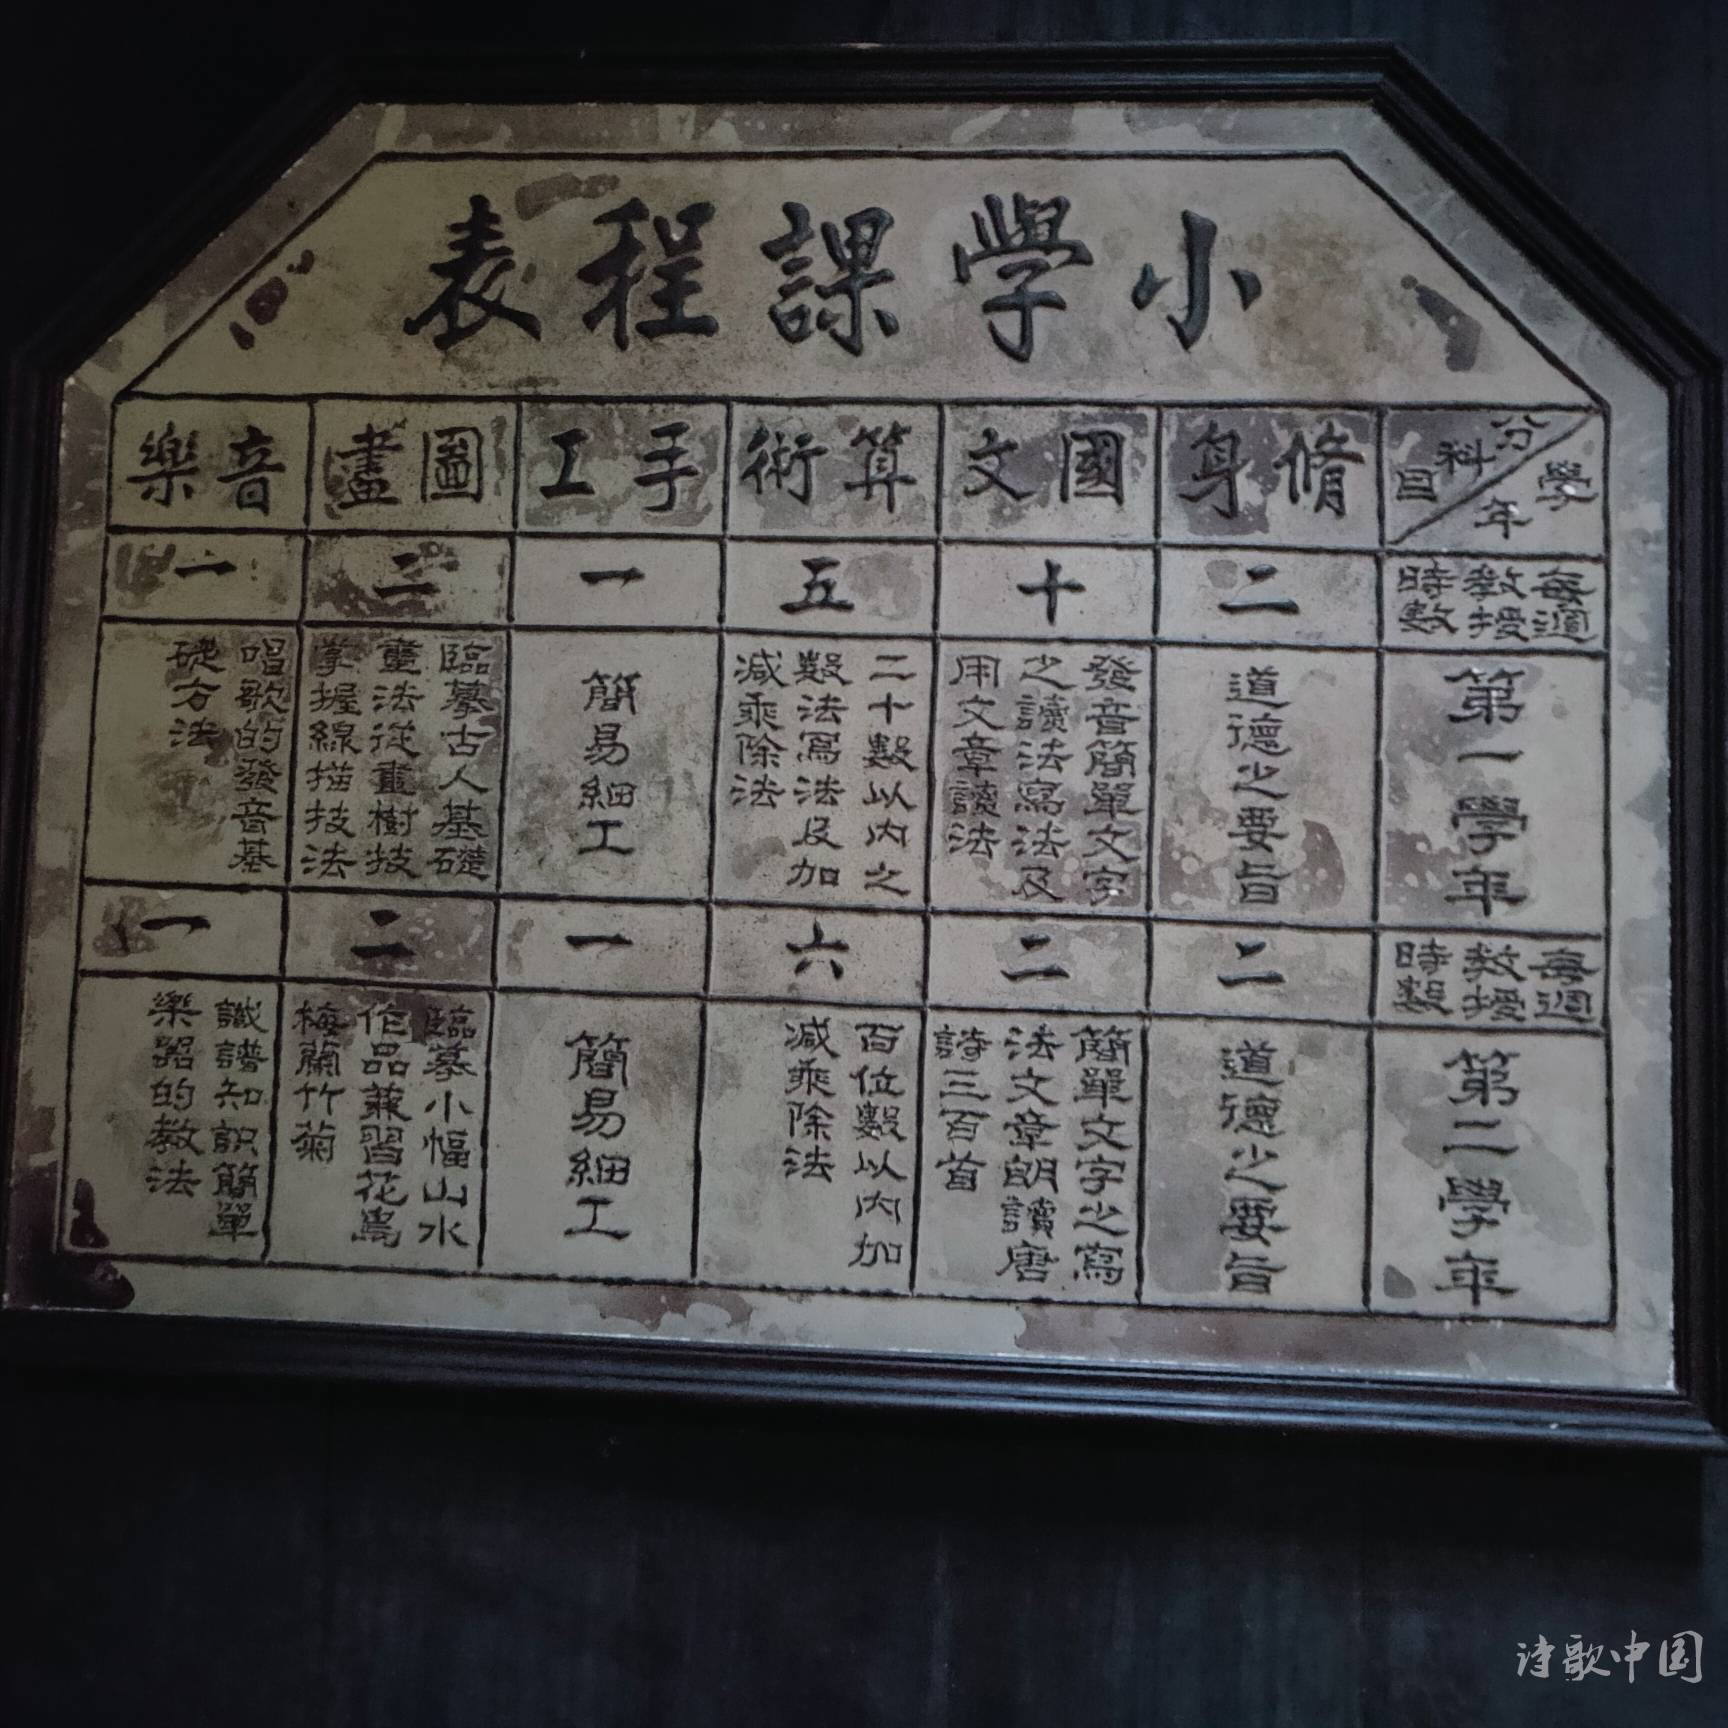 小學課程表
分科目 學年
修身
國文
算術
手工
圖畫
音樂
每週
教授
時數
二
十
五
一
二
一
第一學年
道德之要旨
發音簡單文字
之讀法寫法及
用文章讀法
二十數以內之
數法寫法及加
減乘除法
簡易細工
臨摹古人基礎
畫法從畫樹技
掌握線描技法
唱歌的發音基
礎方法
每週
教授
時數
二
二
六
一
二
一
第二學年
道德之要旨
簡單文字之寫
法文章朗讀唐
詩三百首
百位數以內加
減乘除法
簡易細工
臨摹小幅山水
作品兼習花鳥
梅蘭竹菊
識譜知識簡單
樂器的教法
诗歌中国